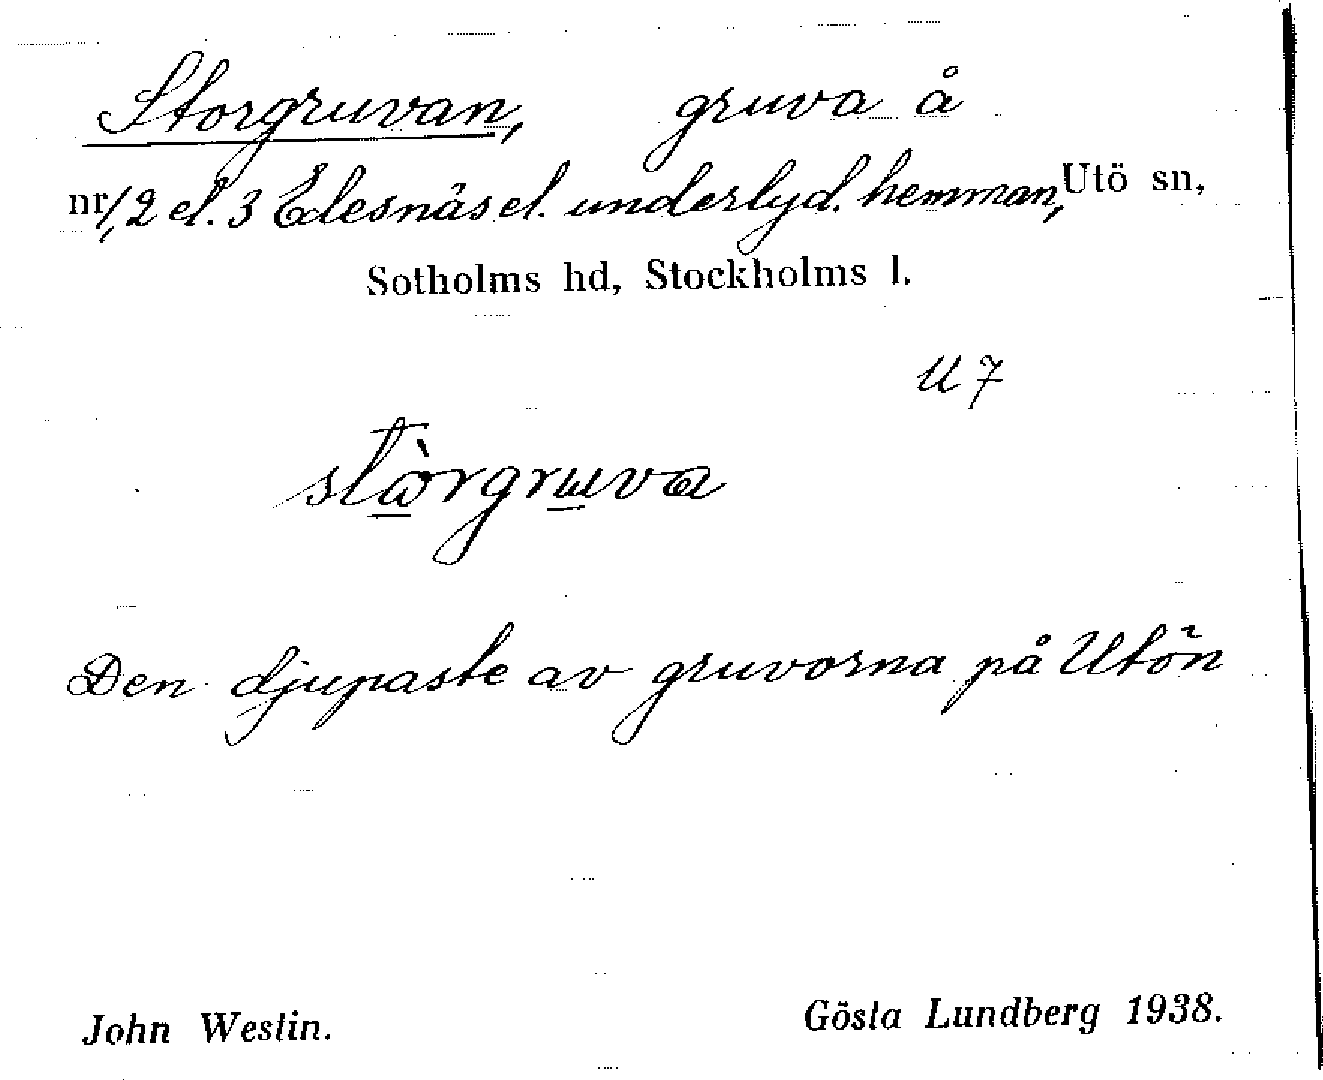 Storgruvan, gruva å
nr 1, 2 el. 3 Edesnäs el. underlyd. hemman, Utö sn,
Sotholms hd, Stockholms l.
U 7
stòrgruva
Den djupaste av gruvorna på Utön
John Westin. Gösta Lundberg 1938.